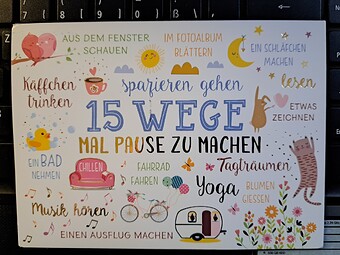 AUS DEM FENSTER
SCHAUEN
IM FOTOALBUM
BLÄTTERN
EIN SCHLÄFCHEN
MACHEN
Käffchen
trinken
spazieren gehen
lesen
15 WEGE
ETWAS
ZEICHNEN
MAL PAUSE ZU MACHEN
EIN BAD
NEHMEN
CHILLEN
FAHRRAD
FAHREN
Tagträumen
Yoga
BLUMEN
GIESSEN
Musik hören
EINEN AUSFLUG MACHEN